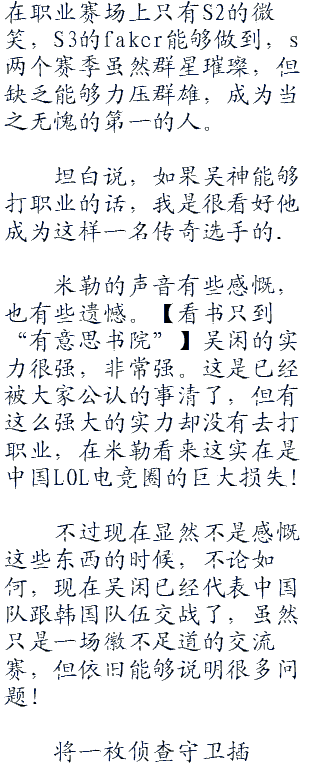 在职业赛场上只有S2的微
笑，S3的fakcr能够做到，s
两个赛季虽然群星璀璨，但
缺乏能够力压群雄，成为当
之无愧的第一的人。
坦白说，如果吴神能够
打职业的话，我是很看好他
成为这样一名传奇选手的.
米勒的声音有些感慨，
也有些遗憾。【看书只到
“有意思书院”】吴闲的实
力很强，非常强。这是已经
被大家公认的事清了，但有
这么强大的实力却没有去打
职业，在米勒看来这实在是
中国LOL电竞圈的巨大损失！
不过现在显然不是感慨
这些东西的时候，不论如
何，现在吴闲已经代表中国
队跟韩国队伍交战了，虽然
只是一场徽不足道的交流
赛，但依旧能够说明很多问
题！
将一枚侦查守卫插